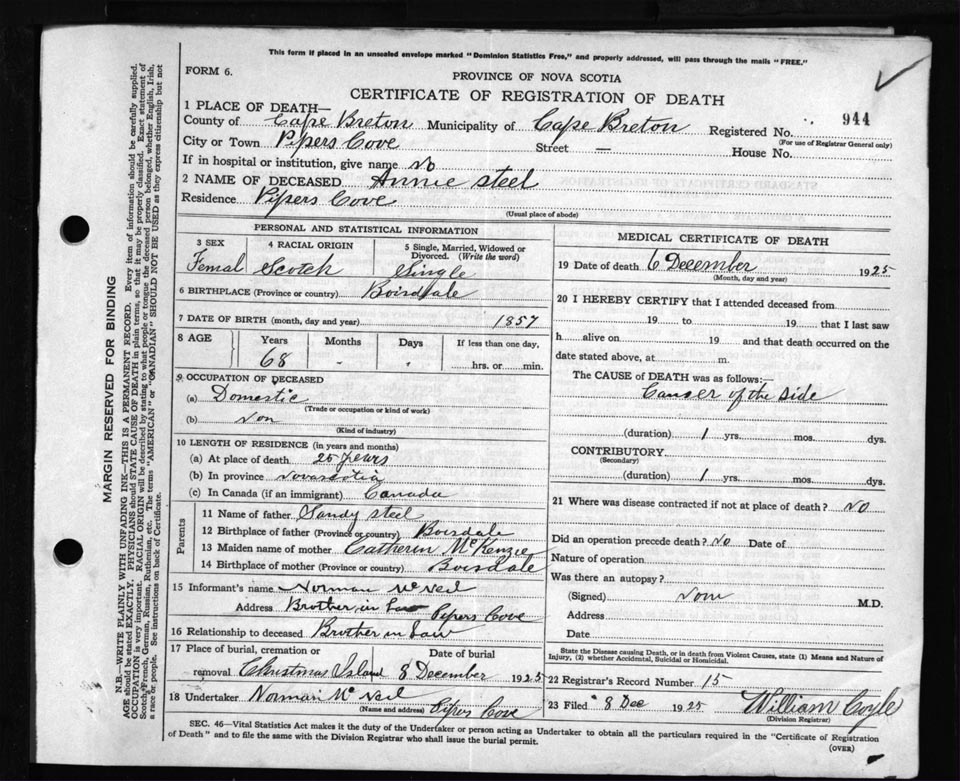 This form if placed in an unsealed envelope marked "Dominion Statistics Free," and properly addressed, will pass through the mails "FREE."
FORM 6.
PROVINCE OF NOVA SCOTIA
CERTIFICATE OF REGISTRATION OF DEATH
1 PLACE OF DEATH—
County of Cape Breton Municipality of Cape Breton Registered No. 944
(For use of Registrar General only)
City or Town Pipers Cove Street — House No.
If in hospital or institution, give name No
2 NAME OF DECEASED Annie Steel
Residence Pipers Cove
(Usual place of abode)
PERSONAL AND STATISTICAL INFORMATION
3 SEX 4 RACIAL ORIGIN 5 Single, Married, Widowed or Divorced. (Write the word)
Femal Scotch Single
6 BIRTHPLACE (Province or country) Boisdale
7 DATE OF BIRTH (month, day and year) 1857
8 AGE Years Months Days If less than one day,
68 - - hrs. or min.
9 OCCUPATION OF DECEASED
(a) Domestic
(Trade or occupation or kind of work)
(b) Non
(Kind of industry)
10 LENGTH OF RESIDENCE (in years and months)
(a) At place of death 25 years
(b) In province Novascotia
(c) In Canada (if an immigrant) Canada
Parents
11 Name of father Sandy Steel
12 Birthplace of father (Province or country) Boisdale
13 Maiden name of mother Catherin McKenzie
14 Birthplace of mother (Province or country) Boisdale
15 Informant's name Norman McNeil
Address Brother in Law Pipers Cove
16 Relationship to deceased Brother in Law
17 Place of burial, cremation or removal Date of burial
Christmas Island 8 December 1925
18 Undertaker Norman McNeil
(Name and address) Pipers Cove
MEDICAL CERTIFICATE OF DEATH
19 Date of death 6 December 1925
(Month, day and year)
20 I HEREBY CERTIFY that I attended deceased from
19 to 19 that I last saw
h alive on 19 and that death occurred on the
date stated above, at m.
The CAUSE of DEATH was as follows:
Canser of the side
(duration) 1 yrs. mos. dys.
CONTRIBUTORY
(Secondary)
(duration) 1 yrs. mos. dys.
21 Where was disease contracted if not at place of death? No
Did an operation precede death? No Date of
Nature of operation
Was there an autopsy?
(Signed) Non M.D.
Address
Date
State the Disease causing Death, or in death from Violent Causes, state (1) Means and Nature of Injury, (2) whether Accidental, Suicidal or Homicidal.
22 Registrar's Record Number 15
23 Filed 8 Dec 1925 William Coyle
(Division Registrar)
SEC. 46—Vital Statistics Act makes it the duty of the Undertaker or person acting as Undertaker to obtain all the particulars required in the "Certificate of Registration
of Death" and to file the same with the Division Registrar who shall issue the burial permit.
(OVER)
MARGIN RESERVED FOR BINDING
N.B.—WRITE PLAINLY WITH UNFADING INK—THIS IS A PERMANENT RECORD. Every item of information should be carefully supplied.
AGE should be stated EXACTLY. PHYSICIANS should STATE CAUSE OF DEATH in plain terms, so that it may be properly classified. Exact statement of
OCCUPATION is very important. RACIAL ORIGIN will be described by stating to what people or tongue the deceased person belonged, whether English, Irish,
Scotch, French, German, Russian, Ruthenian, etc. The terms "AMERICAN" or "CANADIAN" SHOULD NOT BE USED as they express citizenship but not
a race or people. See instructions on back of Certificate.